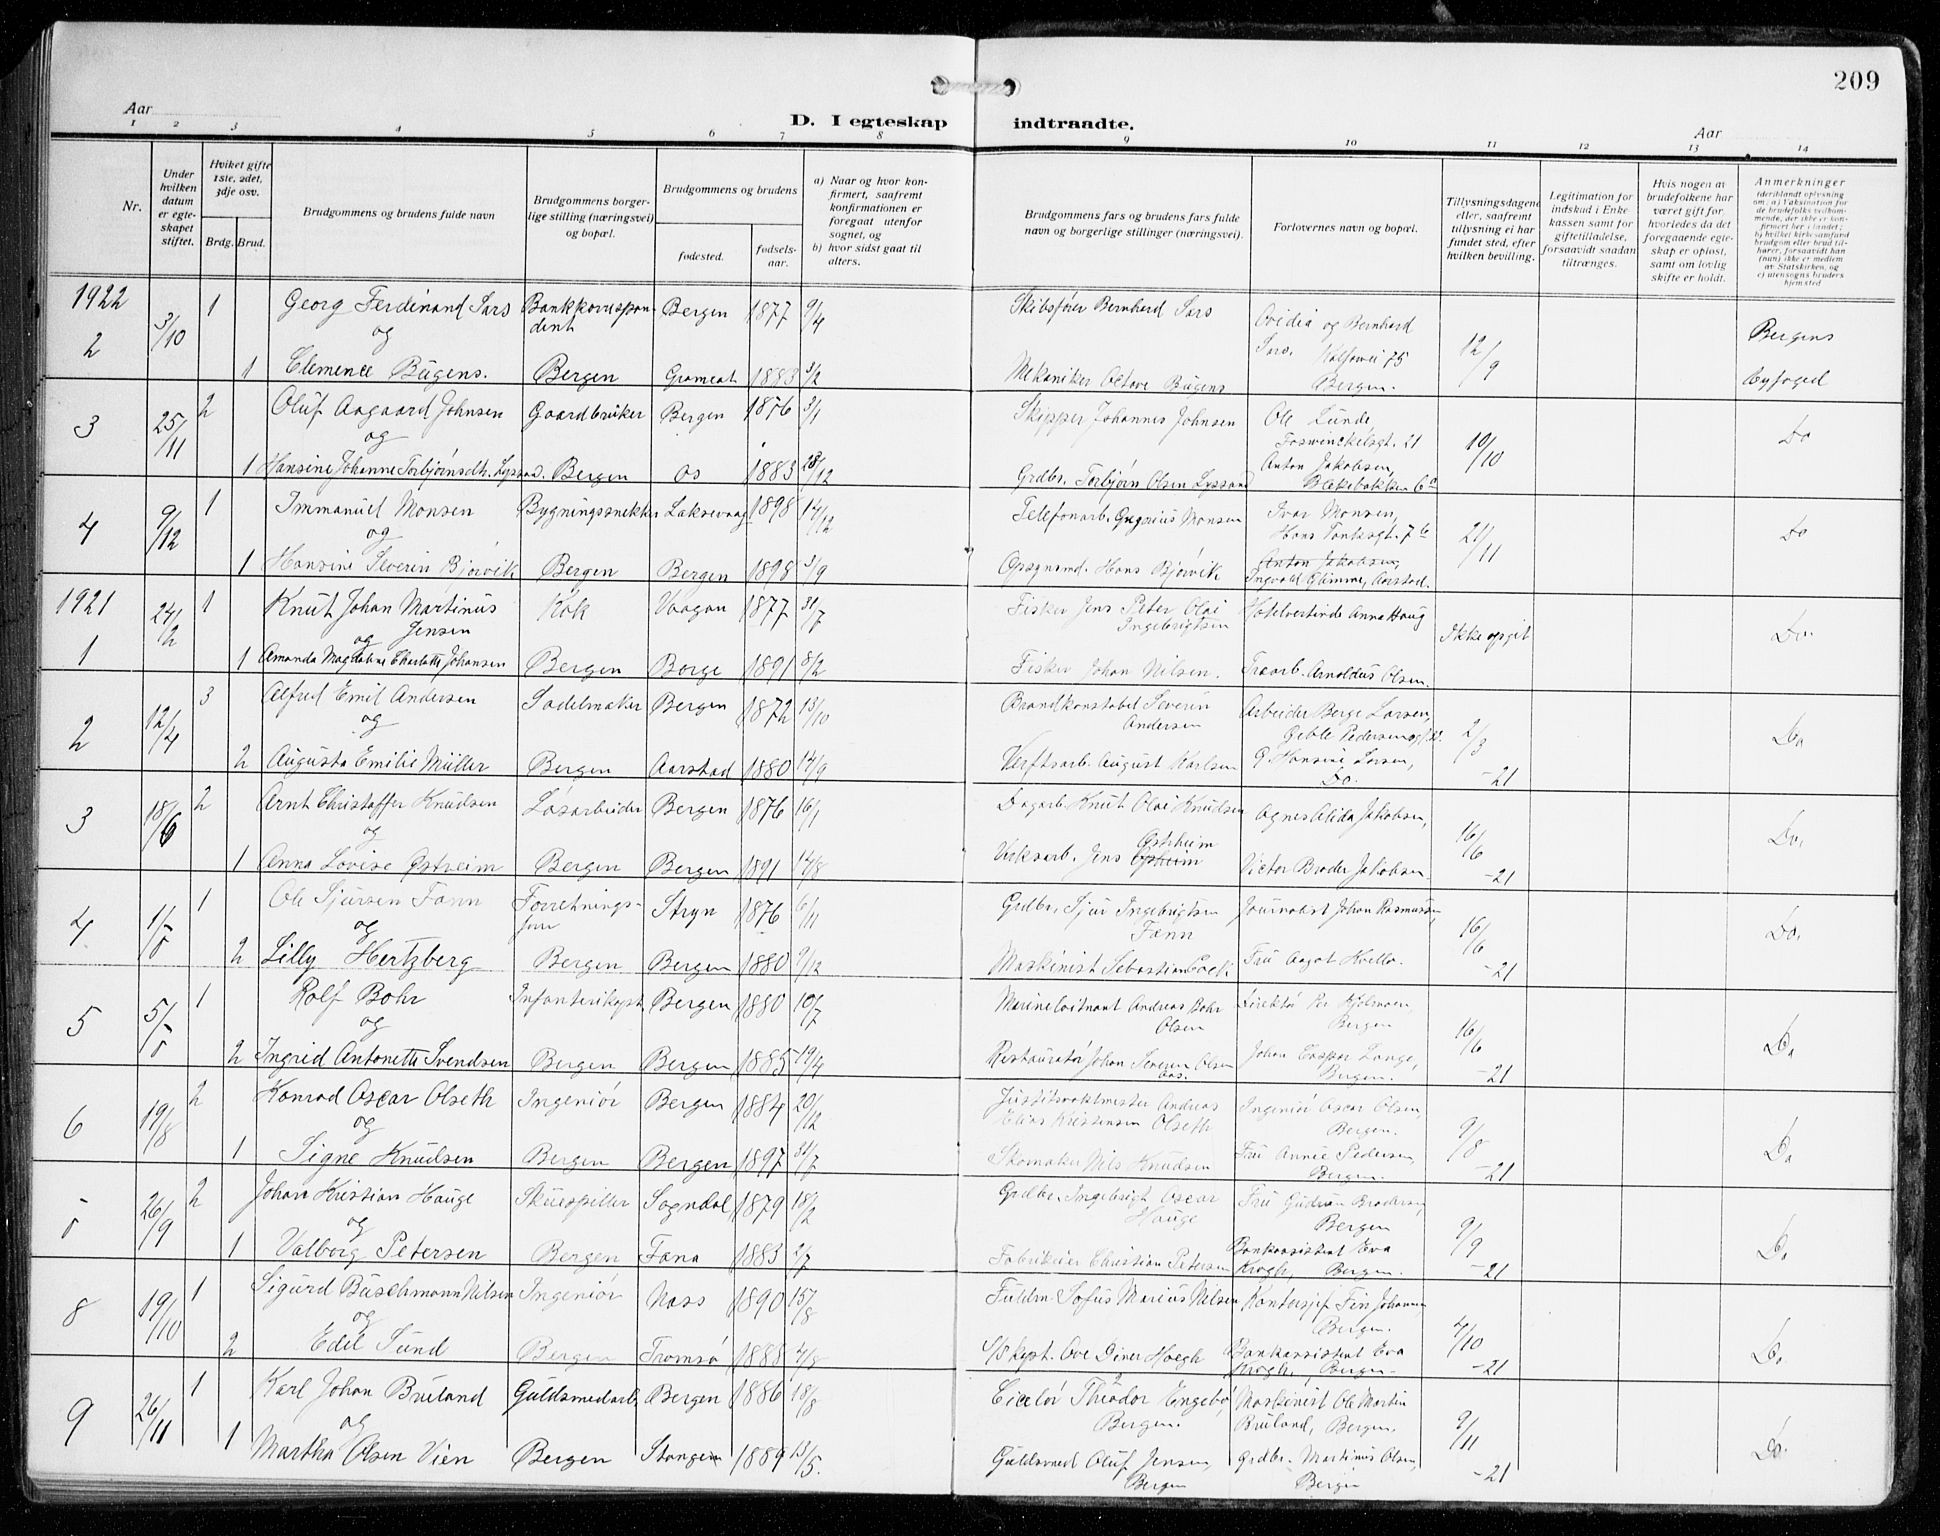 209
Aar
Aar
D. I egteskap indtraadte.
1 2 3 4 5 6 7 8 9 10 11 12 13 14
Nr.
Under hvilken datum er egteskapet stiftet.
Hviket gifte 1ste, 2det, 3dje osv.
Brdg. Brud.
Brudgommens og brudens fulde navn
Brudgommens borgerlige stilling (næringsvei) og bopæl.
Brudgommens og brudens
fødested.
fødselsaar.
a) Naar og hvor konfirmert, saafremt konfirmationen er foregaat utenfor sognet, og
b) hvor sidst gaat til alters.
Brudgommens fars og brudens fars fulde navn og borgerlige stillinger (næringsvei).
Forlovernes navn og bopæl.
Tillysningsdagene eller, saafremt tillysning ei har fundet sted, efter hvilken bevilling.
Legitimation for indskud i Enkekassen samt for giftetilladelse, forsaavidt saadan tiltrænges.
Hvis nogen av brudefolkene har været gift før, hvorledes da det foregaaende egteskap er opløst, samt om lovlig skifte er holdt.
Anmerkninger
(deriblandt oplysning om: a) Vaksination for de brudefolks vedkommende, der ikke er konfirmert her i landet; b) hvilket kirkesamfund brudgom eller brud tilhører, forsaavidt han (hun) ikke er medlem av Statskirken, og c) utensogns bruders hjemsted
1922
2 3/10 1 Georg Ferdinand Sars Bankkorrespondent Bergen 1877 9/4 Skibsfører Bernhard Sars Ovidia og Bernhard Sars. Kalfarvei 75 12/9 Bergens
og
1 Clemence Bugens. Bergen 1883 3/2 Mekaniker Octave Bugens Bergen. Byfoged
3 25/11 2 Oluf Aagaard Johnsen Gaardbruker Bergen 1876 3/1 Skipper Johannes Johnsen Ole Lunde, Foswinckelsgt. 21 10/10 Do
og
1 Hansine Johanne Torbjørnsdtr. Lyssand. Bergen Os 1883 28/12 Grdbr. Torbjørn Olsen Lyssand Anton Jakobsen, Blekebakken 6a
4 9/12 1 Immanuel Monsen Bygningssnekker Laksevaag 1898 14/12 Telefonarb. Gregorius Monsen Ivar Monsen, Hans Tanksgt. 7b 21/11 Do
og
1 Hansine Severin Bjørvik Bergen Bergen 1898 3/9 Opsynsmd. Hans Bjørvik Anton Jakobsen, Ingvald Glimme, Aarstad.
1921
1 24/2 1 Knut Johan Martinus Jensen Kok Vaagan 1877 31/7 Fisker Jens Peter Olai Ingebrigtsen Hotelvertinde Anna Haug Ikke opgit Do
og
1 Amanda Magdalene Charlotte Johansen Bergen Borge 1891 8/2 Fisker Johan Nilsen. Træarb. Arnoldus Olsen.
2 12/4 3 Alfred Emil Andersen Sadelmaker Bergen 1872 13/10 Brandkonstabel Severin Andersen Arbeider Berge Larsen, Geble Pedersensg. 2/3 Do
og
2 Augusta Emilie Müller Bergen Aarstad 1880 14/9 Verftsarb. August Karlsen G. Hansine Larsen, Do. -21
3 18/6 2 Arnt Christoffer Knudsen Løsarbeider Bergen 1876 16/1 Dagarb. Knut Olai Knudsen Agnes Alida Jakobsen, 16/6 Do.
og
1 Anna Lovise Østrheim Bergen Bergen 1891 14/8 Verksarb. Jens Østrheim Victor Broder Jakobsen. -21
4 1/8 1 Ole Sjursen Fænn Forretnings- Stryn 1876 6/11 Grdbr. Sjur Ingebrigtsen Fænn Journalist Johan Rasmussen 16/6 Do.
og
2 Lilly Hertzberg Bergen Bergen 1880 9/12 Maskinist Sebastian Fru Aagot Kvelle. -21
5 5/8 1 Rolf Bohr Infanterikapt. Bergen 1880 10/7 Marineløitnant Andreas Bohr Olsen Direktør Per Kjølmoen, Bergen 16/6 Do
og
2 Ingrid Antonette Svendsen Bergen Bergen 1885 19/4 Restauratør Johan Severin Olsen Johan Casper Lange, Bergen. -21
6 19/8 2 Konrad Oscar Olseth Ingeniør Bergen 1884 20/12 Justitsvaktmester Andreas Elias Kristensen Olseth Ingeniør Oscar Olsen, Bergen. 9/8 Do
og
1 Signe Knudsen Bergen Bergen 1897 31/7 Skomaker Nils Knudsen Fru Annie Pedersen, Bergen. -21
26/9 2 Johan Kristian Hauge Skuespiller Sogndal 1879 18/2 Grdbr. Ingebrigt Oscar Hauge Fru Gudrun Brodersen, Bergen 9/9 Do
og
1 Valborg Petersen Bergen Fana 1883 2/7 Fabrikeier Christian Petersen Bankassistent Eva Krogh, Bergen. -21
8 19/10 1 Sigurd Buschmann Nilsen Ingeniør Næss 1890 15/8 Fuldm. Sofus Marius Nilsen Kontorsjef Fin Johannesen Bergen. 4/10 Do
og
2 Edel Sund Bergen Tromsø 1888 4/8 S/Skpt. Ove Diner Høegh Bankassistent Eva Krogh, Bergen. -21
9 26/11 1 Karl Johan Bruland Guldsmedarb. Bergen 1886 18/8 Ciselør Theodor Engebø, Bergen. Maskinist Ole Martin Bruland, Bergen. 9/11 Do
og
1 Martha Olsen Vien Bergen Stangen 1889 13/5. Guldsmed Oluf Jensen, Bergen Grdbr. Martinus Olsen, Bergen -21